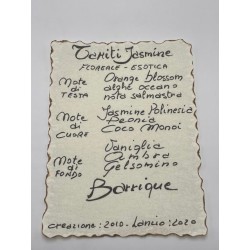 Tahiti Jasmine
FLOREALE - ESOTICA
Note di TESTA
Orange blossom
alghe oceano
nota salmastra
Note di CUORE
Jasmine Polinesia
Peonia
Coco Monoi
Note di FONDO
Vaniglia
Ambra
Gelsomino
Barrique
CREAZIONE: 2010 - Lancio: 2020